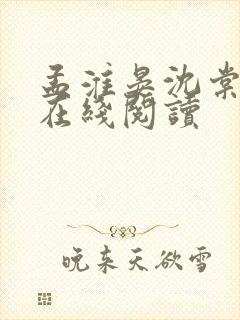 孟淮晏沈棠
在綫閱讀
晚来天欲雪